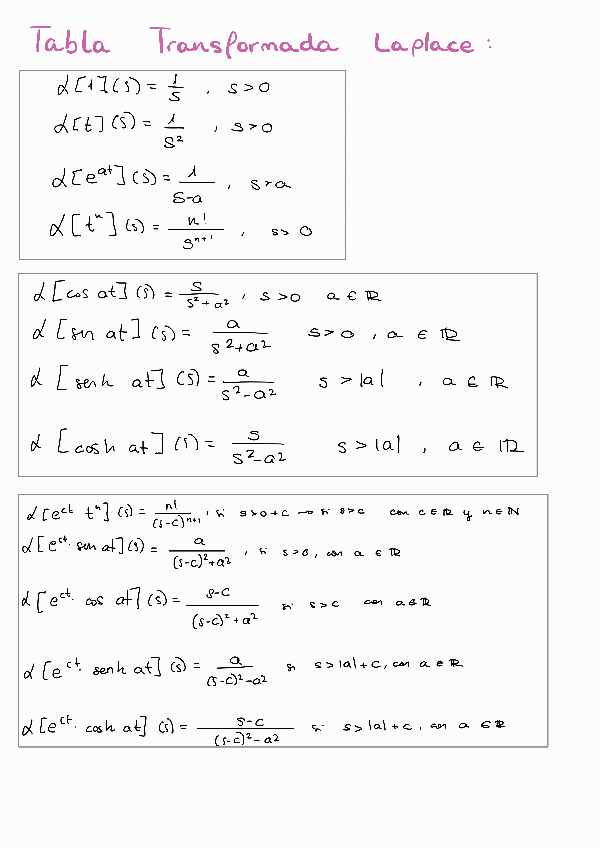 Tabla Transformada Laplace :
ℒ[1](s) = 1/s , s>0
ℒ[t](s) = 1/s² , s>0
ℒ[e^{at}](s) = 1/(s-a) , s>a
ℒ[tⁿ](s) = n!/s^{n+1} , s>0
ℒ[cos at](s) = s/(s²+a²) , s>0 a ∈ ℝ
ℒ[sen at](s) = a/(s²+a²) s>0 , a ∈ ℝ
ℒ[senh at](s) = a/(s²-a²) s>|a| , a ∈ ℝ
ℒ[cosh at](s) = s/(s²-a²) s>|a| , a ∈ ℝ
ℒ[e^{ct} tⁿ](s) = n!/(s-c)^{n+1} , si s>0+c → si s>c con c∈ℝ y n∈ℕ
ℒ[e^{ct}· sen at](s) = a/((s-c)²+a²) , si s>0, con a ∈ ℝ
ℒ[e^{ct}· cos at](s) = s-c/((s-c)²+a²) si s>c con a∈ℝ
ℒ[e^{ct}· senh at](s) = a/((s-c)²-a²) si s>|a|+c, con a ∈ ℝ
ℒ[e^{ct}· cosh at](s) = s-c/((s-c)²-a²) si s>|a|+c, con a ∈ ℝ